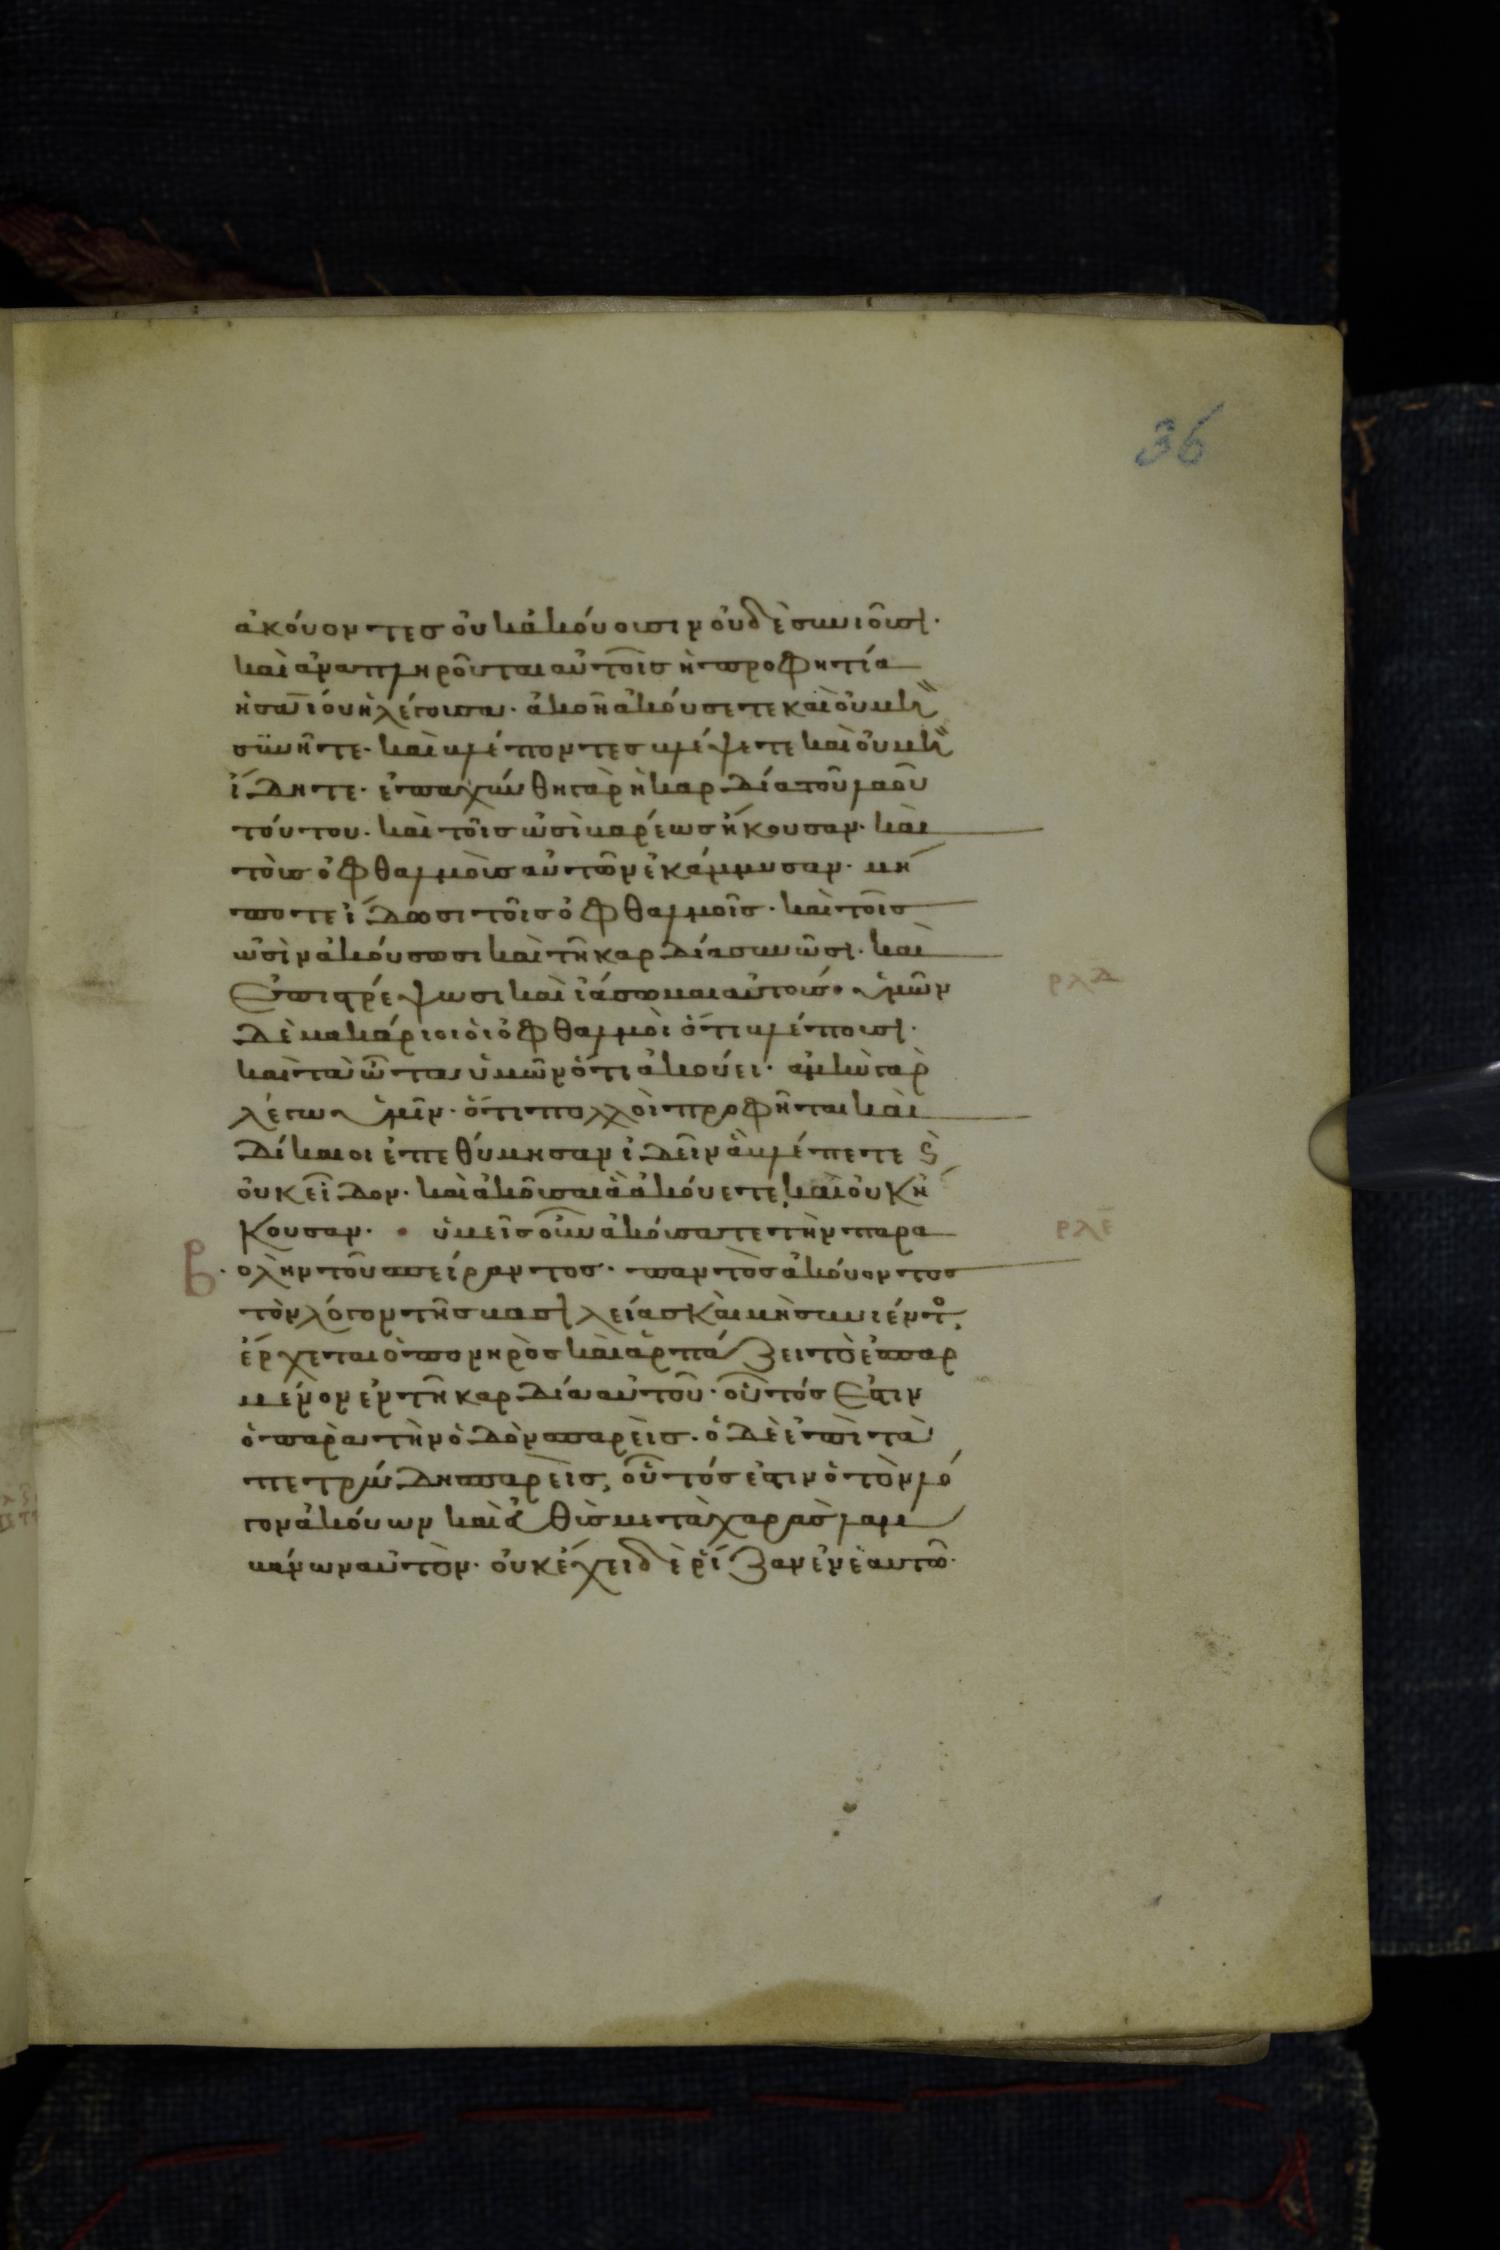 36
ἀκούοντες οὐκ ἀκούουσιν οὐδὲ συνιοῦσι·
καὶ ἀναπληροῦται αὐτοῖς ἡ προφητία
ἡσαΐου ἡ λέγουσα· ἀκοῆ ἀκούσετε καὶ οὐ μὴ
συνῆτε· καὶ βλέποντες βλέψετε καὶ οὐ μὴ
ἴδητε· ἐπαχύνθη γὰρ ἡ καρδία τοῦ λαοῦ
τούτου· καὶ τοῖς ὠσὶ βαρέως ἤκουσαν· καὶ
τοὺς ὀφθαλμοὺς αὐτῶν ἐκάμμυσαν· μή
ποτε ἴδωσι τοῖς ὀφθαλμοῖς· καὶ τοῖς
ὠσὶν ἀκούσωσι καὶ τῆ καρδία συνῶσι· καὶ
ἐπιστρέψωσι καὶ ἰάσωμαι αὐτούς· ὑμῶν
ρλδ
δὲ μακάριοι οἱ ὀφθαλμοὶ ὅτι βλέπουσι·
καὶ τὰ ὦτα ὑμῶν ὅτι ἀκούει· ἀμὴν γὰρ
λέγω ὑμῖν· ὅτι πολλοὶ προφῆται καὶ
δίκαιοι ἐπεθύμησαν ἰδεῖν ἃ βλέπετε ϛ̀
οὐκ εἶδον· καὶ ἀκοῦσαι ἃ ἀκούετε, καὶ οὐκ ἤ
κουσαν· ὑμεῖς οὖν ἀκούσατε τὴν παρα
ρλε
β· βολὴν τοῦ σπείραντος· παντὸς ἀκούοντος
τὸν λόγον τῆς βασιλείας καὶ μὴ συνιέντο,
ἔρχεται ὁ πονηρὸς καὶ ἁρπάζει τὸ ἐσπαρ
μένον ἐν τῆ καρδία αὐτοῦ· οὗτός ἐστιν
ὁ παρὰ τὴν ὁδὸν σπαρείς· ὁ δὲ ἐπὶ τὰ
πετρώδη σπαρεὶς, οὗτός ἐστιν ὁ τὸν λό
γον ἀκούων καὶ εὐθὺς μετὰ χαρᾶς λαμ
βάνων αὐτὸν· οὐκ ἔχει δὲ ῥίζαν ἐν ἑαυτῶ·